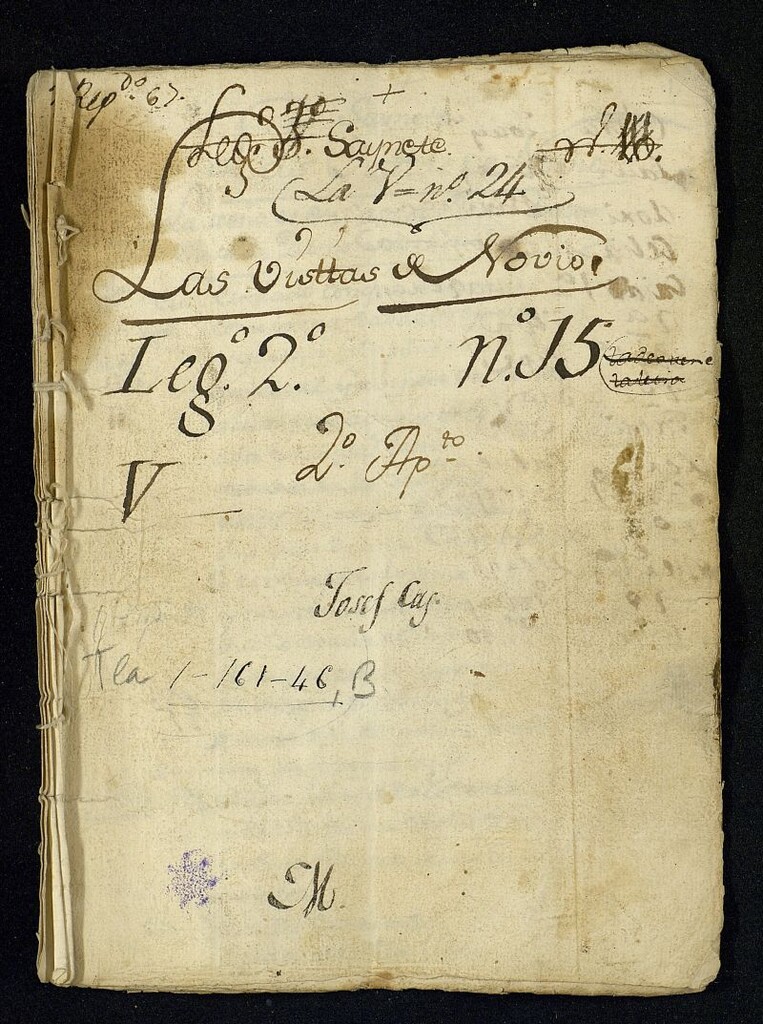 Rep.do 67.
+
Saynete.
La V= nº. 24
Las Visttas de Novio,
Leg.º 2.º nº.15
2º. Ap.to
V
Josef Cas
Tea 1-161-46, B
M